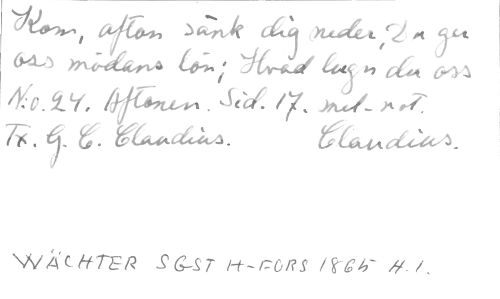 Kom, afton sänk dig neder, Du ger
oss mödans lön; Hvad lugn du oss
N:o. 24. Aftonen. Sid. 17. mel-not.
Tx. G. C. Claudius. Claudius.
WÄCHTER SGST H-FORS 1865 H.1.